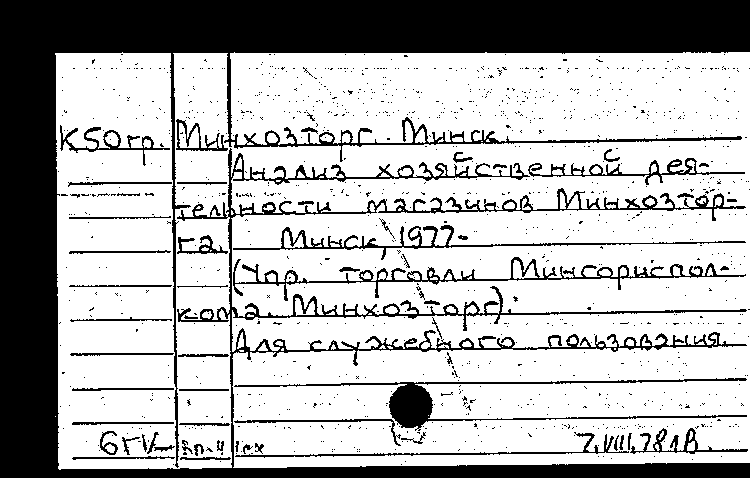 К50гр. Минхозторг. Минск.
Анализ хозяйственной дея-
тельности магазинов Минхозтор-
га. Минск, 1977-
(Упр. торговли Мингориспол-
кома. Минхозторг).
Для служебного пользования.
7.VIII.78